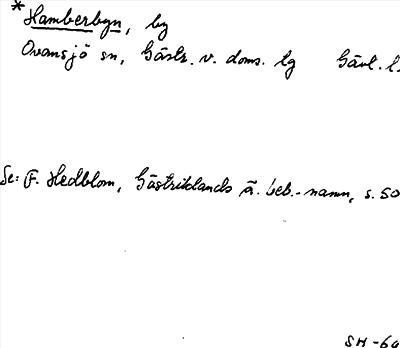 * Hamberbyn, by
Ovansjö sn, Gästr. v. doms. tg Gävl. l.
Se: F. Hedblom, Gästriklands ä. beb.-namn, s. 50
SH -69